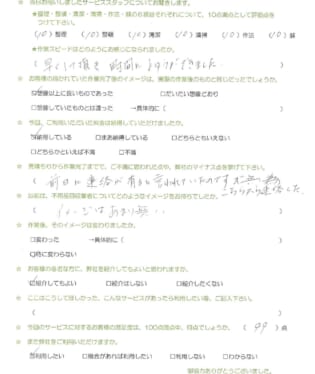 ※ 当日お伺いしましたサービススタッフについてお聞きします。
★整理・整頓・清潔・清掃・作法・躾の6項目それぞれについて、10点満点として評価点を
つけて下さい。
(10) 整理 (10) 整頓 (10) 清潔 (10) 清掃 (10) 作法 (10) 躾
★作業スピードはどのようにお感じになられましたか。
※ お客様の描かれていた作業完了後のイメージは、実際の作業後のものと同じだったでしょうか。
☑想像以上に良いものであった □だいたい想像どおり
□想像していたものとは違った →具体的に( )
※ 今回、ご利用いただいた料金は納得していただけましたか。
☑納得している □まあ納得している □どちらともいえない
□どちらかといえば不満 □不満
※ 見積もりから作業完了までで、ご不満に思われた点や、弊社のマイナス点を挙げて下さい。
( 前日に連絡が有ると言われていたのです
※ 以前は、不用品回収業者についてどのようなイメージをお持ちでしたか。
( イメージはあまり )
※ 作業後、そのイメージは変わりましたか。
□変わった →具体的に( )
☑特に変わらない
※ お客様の身近な方に、弊社を紹介してもよいと思われますか。
☑紹介してもよい □紹介はしない □紹介したくない
※ ここはこうして欲しかった、こんなサービスがあったら利用したい等、ご記入下さい。
( )
※ 今回のサービスに対するお客様の満足度は、100点満点中、何点でしょうか。( 99 )点
※ また弊社をご利用いただけますか。
☑利用したい □機会があれば利用したい □利用しない □わからない
御協力ありがとうございました。